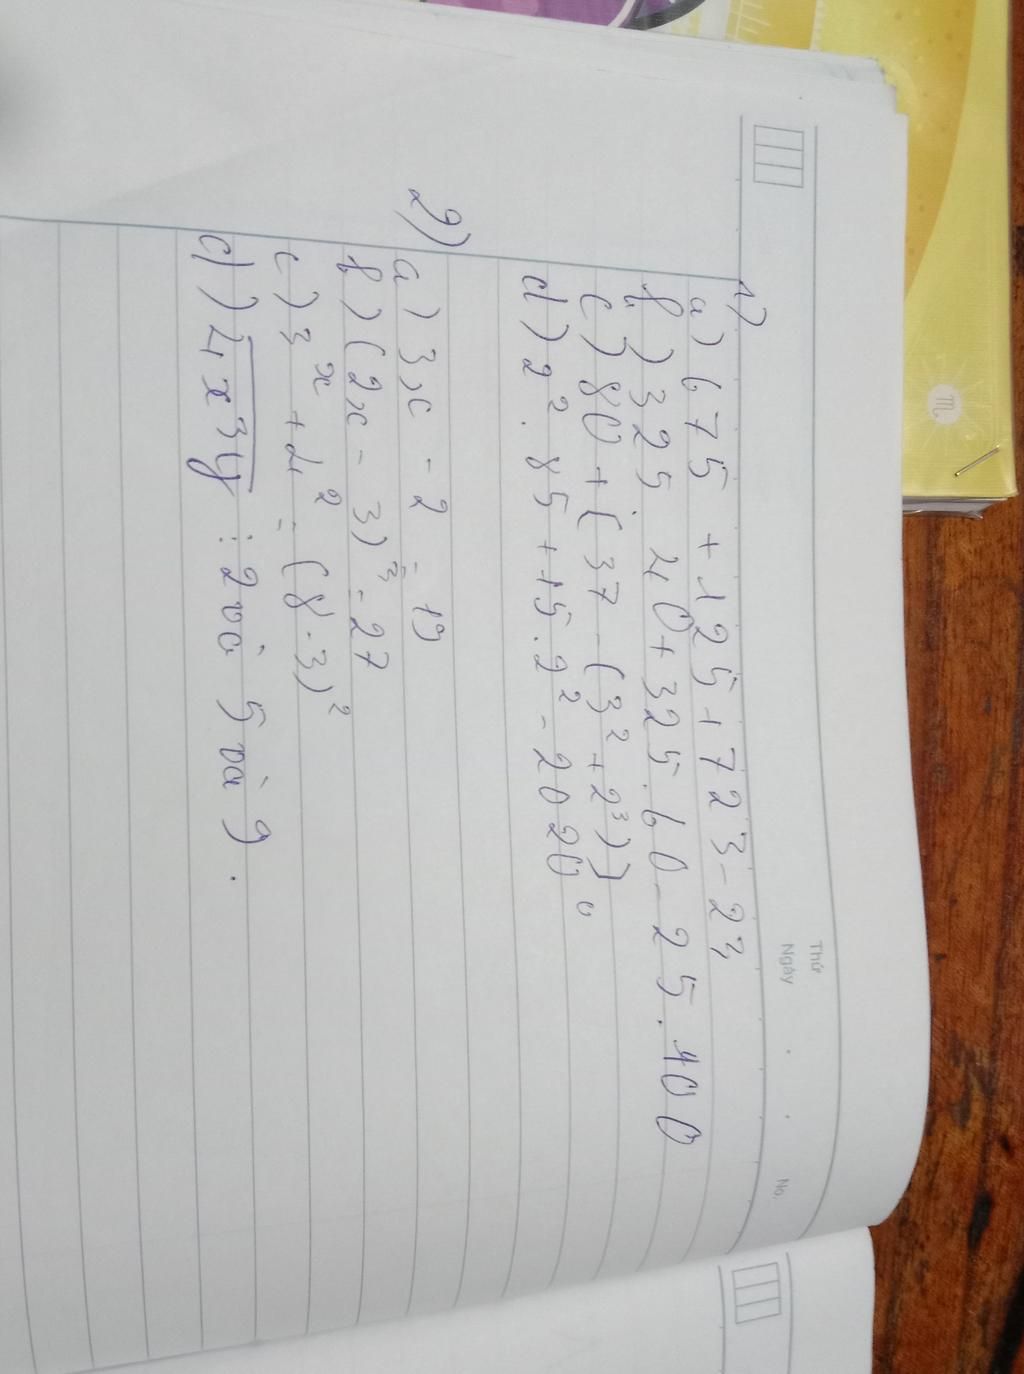 Thứ
Ngày . . No.
1)
a) 675 + 125 + 723 - 23
b) 325 40 + 325 . 60 - 25 . 100
c) 80 + { 37 - (3² + 2³) }
d) 2² . 85 + 15 . 2² - 2020⁰
2)
a) 3x - 2 = 19
b) (2x - 3)³ = 27
c) 3ˣ + 4² = (8 - 3)²
d) 4x3y : 2 và 5 và 9 .